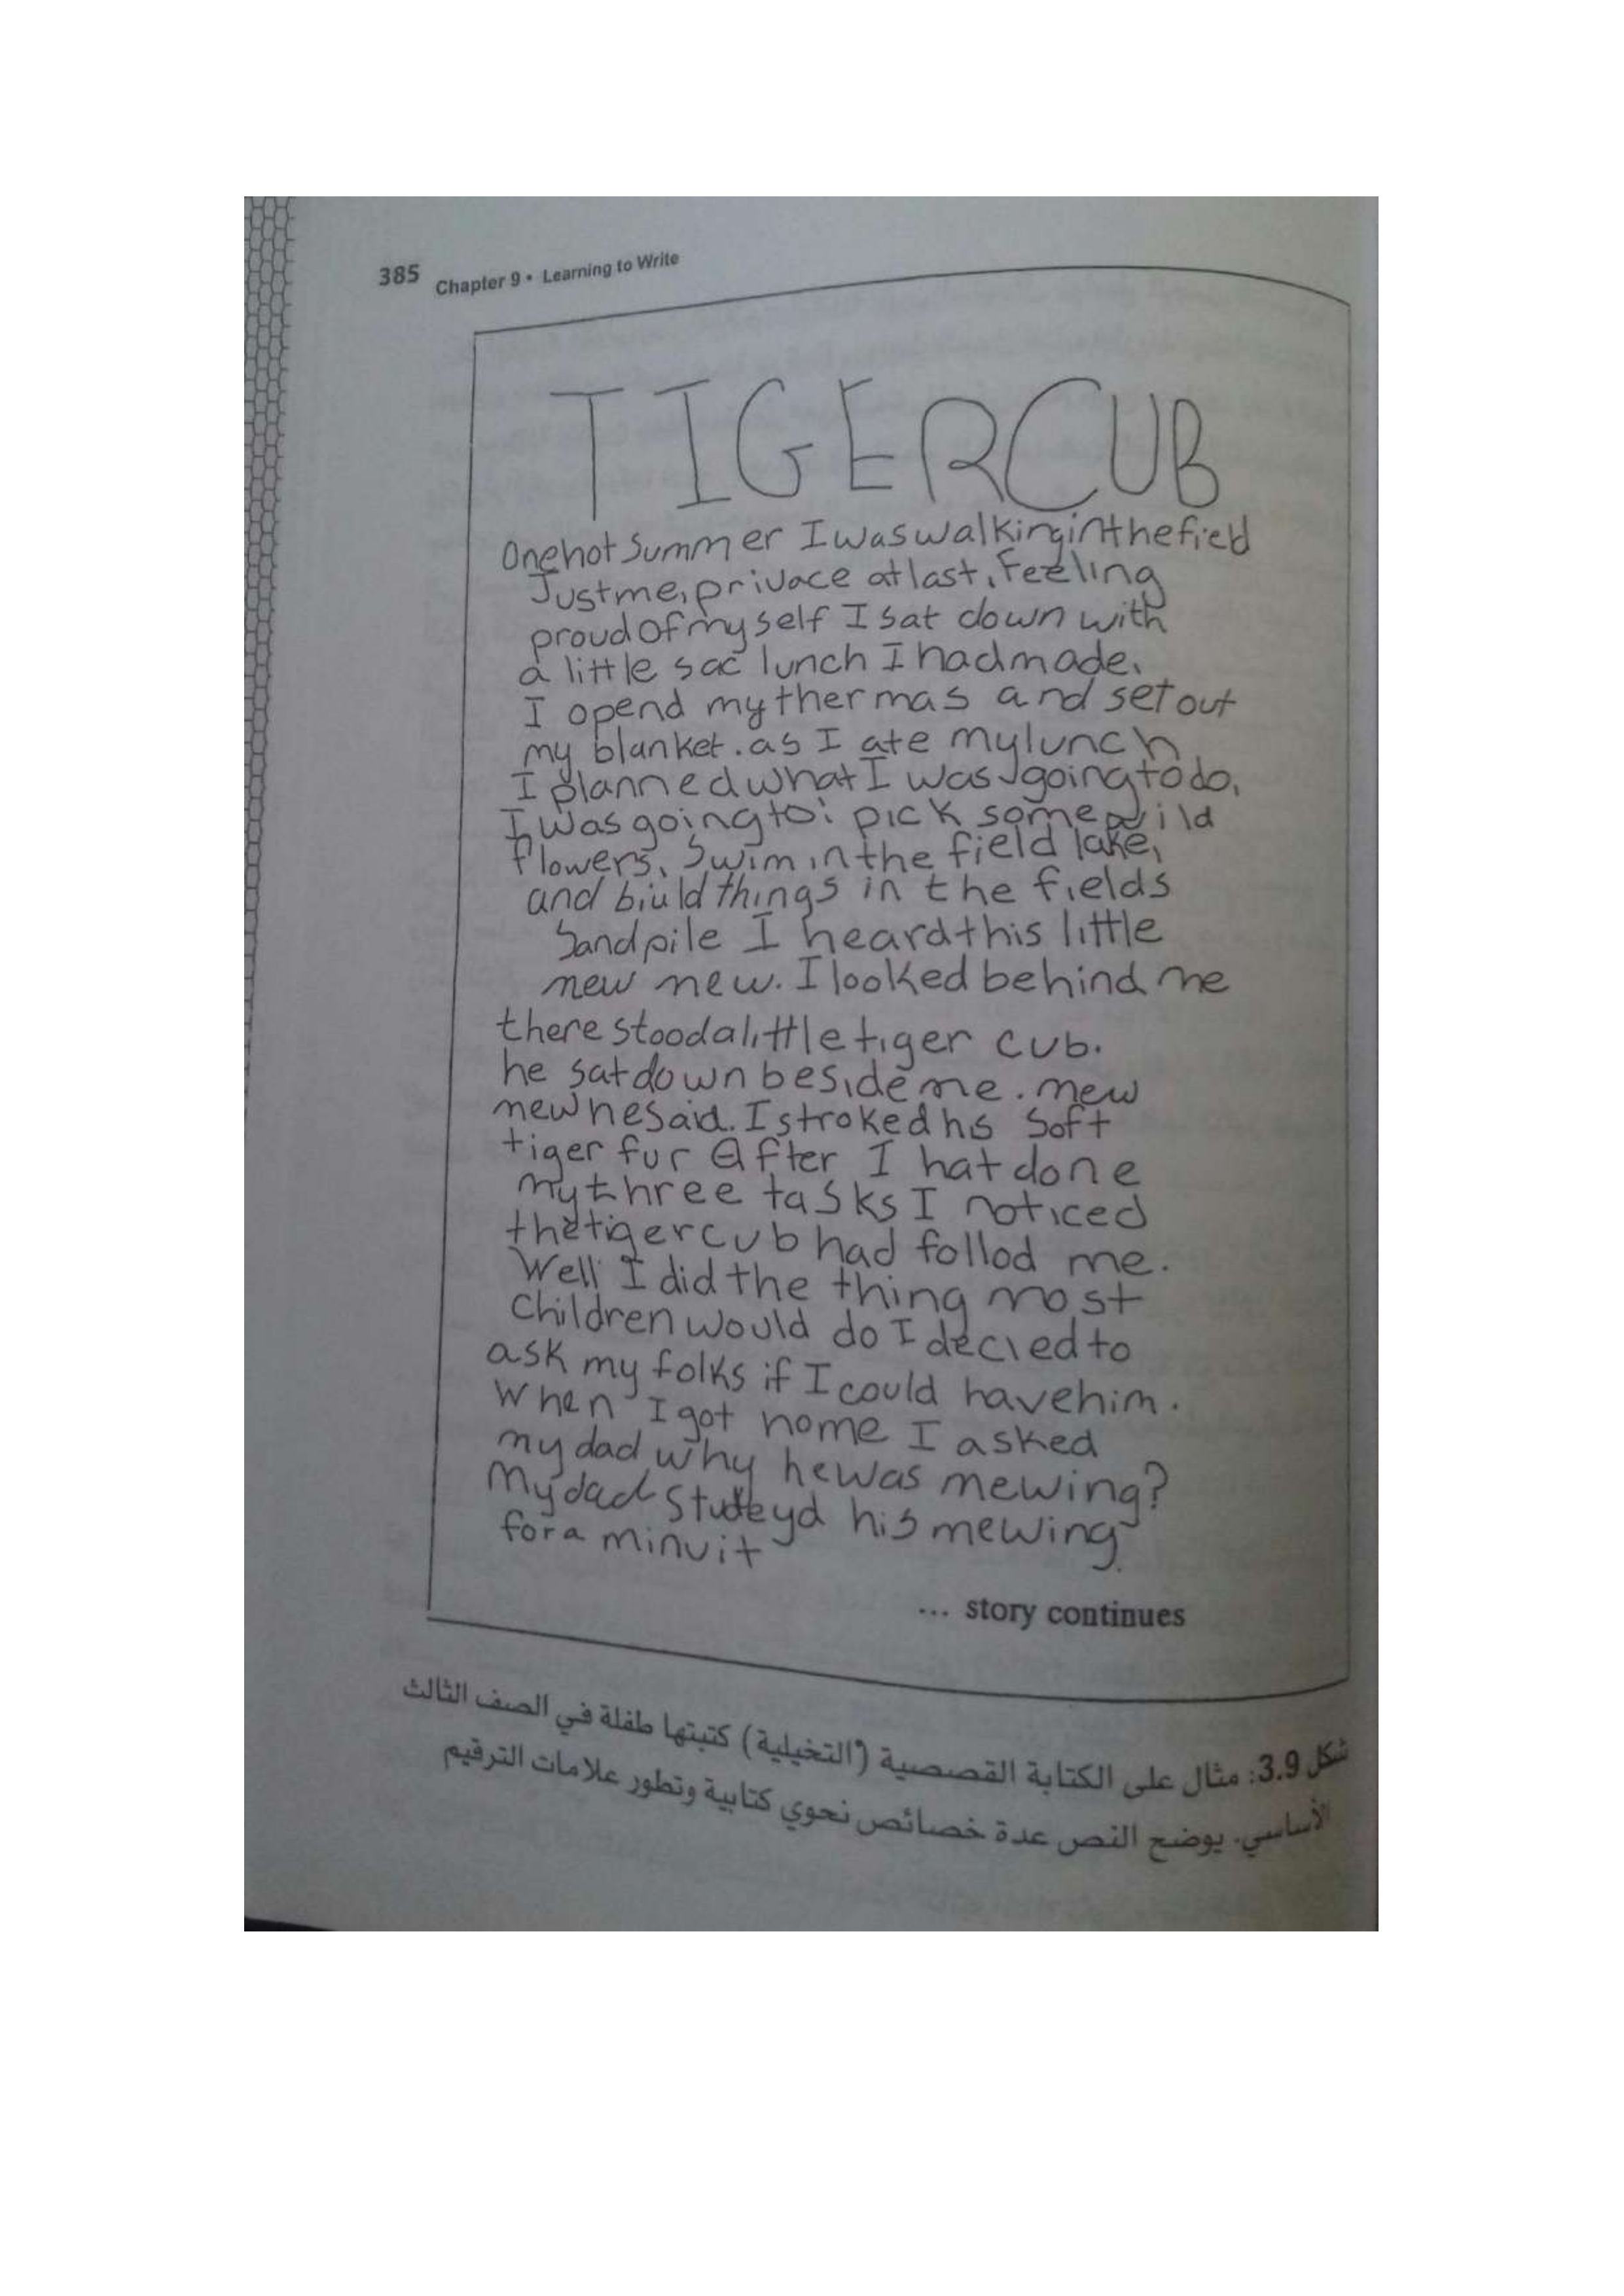 385 Chapter 9 • Learning to Write
TIGERCUB
One hot Summer I was walking in the field
Just me, privace at last. Feeling
proud of myself I sat down with
a little sac lunch I had made.
I opend my thermas and set out
my blanket. as I ate my lunch
I planned what I was going to do.
I was going to: pick some wild
flowers, Swim in the field lake,
and biuld things in the fields
Sand pile I heard this little
mew mew. I looked behind me
there stood a little tiger cub.
he sat down beside me. mew
mew he Said. I stroked his Soft
tiger fur After I hat done
my three tasks I noticed
the tiger cub had follod me.
Well I did the thing most
Children would do I decied to
ask my folks if I could have him.
When I got home I asked
my dad why he was mewing?
My dad Studeyd his mewing
for a minuit
... story continues
شكل 3.9: مثال على الكتابة القصصية (التخيلية) كتبتها طفلة في الصف الثالث
الأساسي. يوضح النص عدة خصائص نحوي كتابية وتطور علامات الترقيم